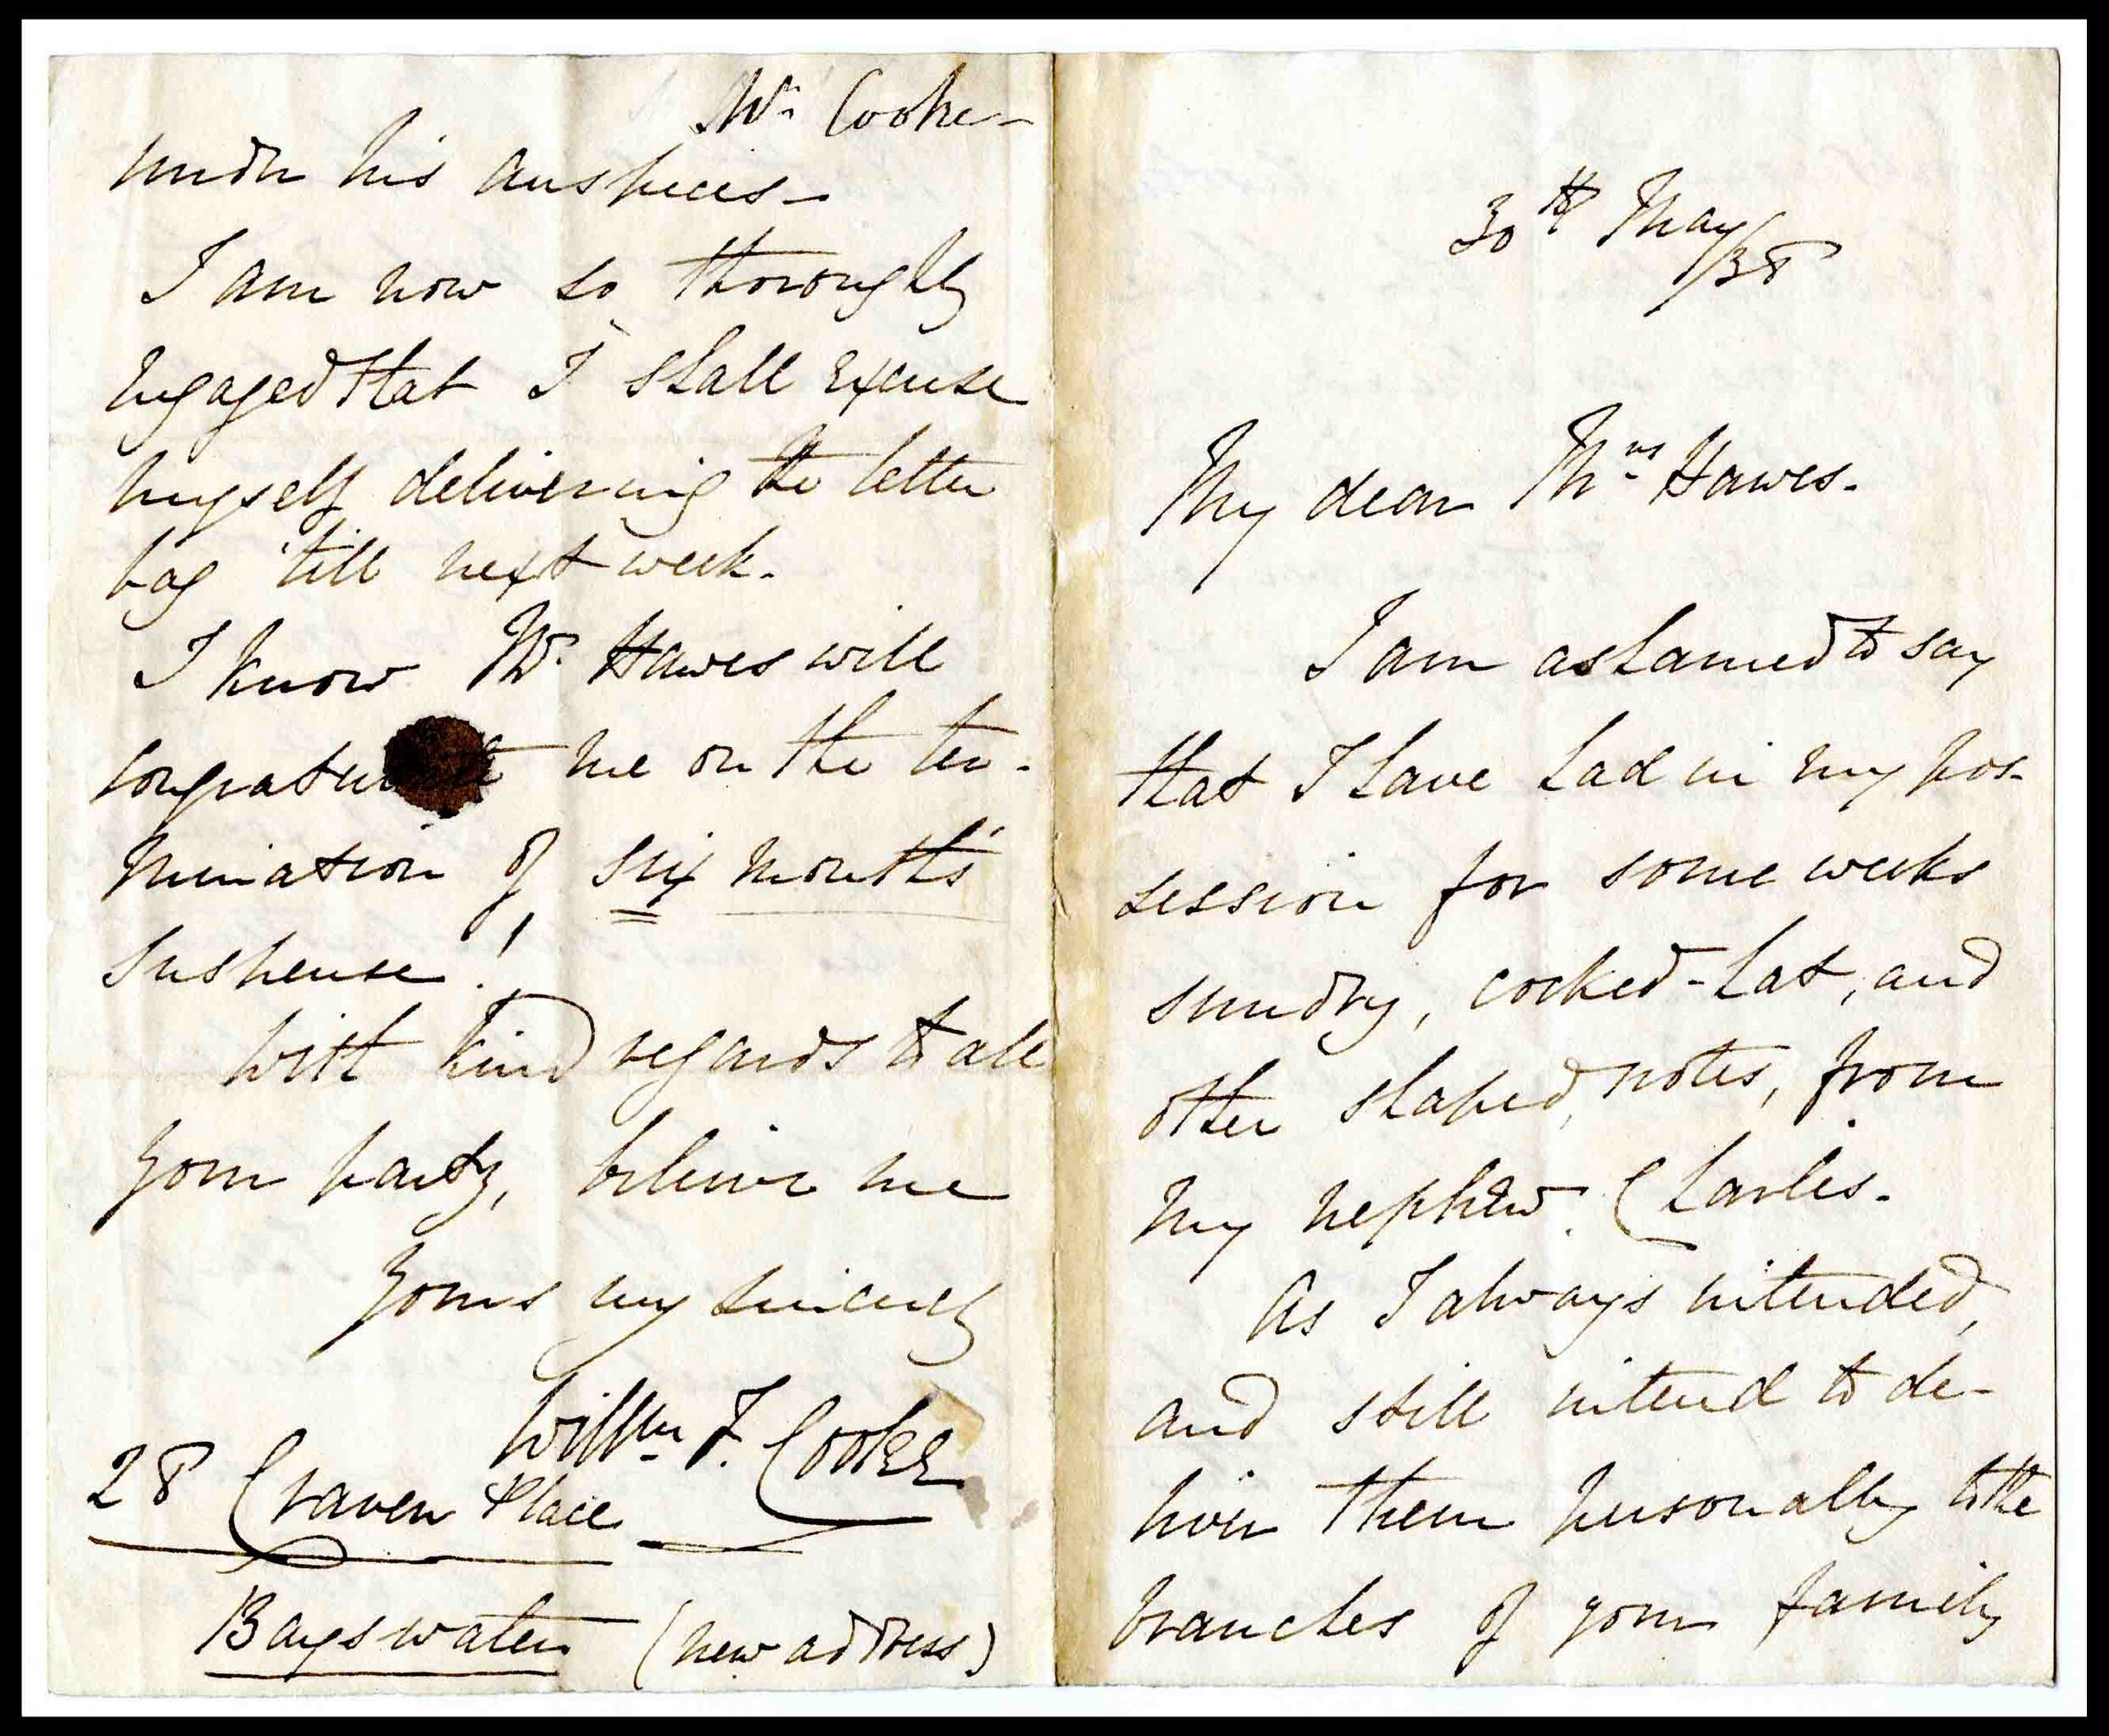 Mr. Cooke -
under his auspices -
I am now so thoroughly
engaged that I shall excuse
myself delivering the letter
bag 'till next week.
I know Mr. Hawes will
congratulate me on the ter-
mination of six months'
suspense!
With kind regards to all
your party, believe me
Yours very sincerely
Willm. F. Cooke
28 Craven Place
Bayswater (new address)
30th May
/38
My dear Mrs. Hawes.
I am ashamed to say
that I have had in my pos-
session for some weeks
sundry, cocked-hat, and
other shaped, notes, from
my nephew Charles.
As I always intended,
and still intend to de-
liver them personally to the
branches of your family